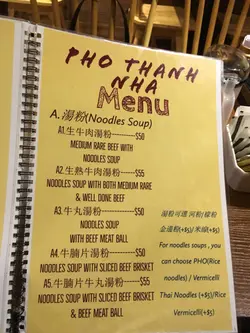 PHO THANH
NHA
Menu
A. 湯粉(Noodles Soup)
A1.生牛肉湯粉-------$50
MEDIUM RARE BEEF WITH
NOODLES SOUP
A2.生熟牛肉湯粉-----$55
NOODLES SOUP WITH BOTH MEDIUM RARE
& WELL DONE BEEF
A3.牛丸湯粉--------$50
NOODLES SOUP
WITH BEEF MEAT BALL
A4.牛腩片湯粉------$50
NOODLES SOUP WITH SLICED BEEF BRISKET
A5.牛腩片牛丸湯粉---$55
NOODLES SOUP WITH SLICED BEEF BRISKET
& BEEF MEAT BALL
湯粉可選 河粉/檬粉
金邊粉(+$5)/米線(+$5)
For noodles soups , you
can choose PHO(Rice
noodles) / Vermicelli
Thai Noodles (+$5)/Rice
Vermicelli(+$5)